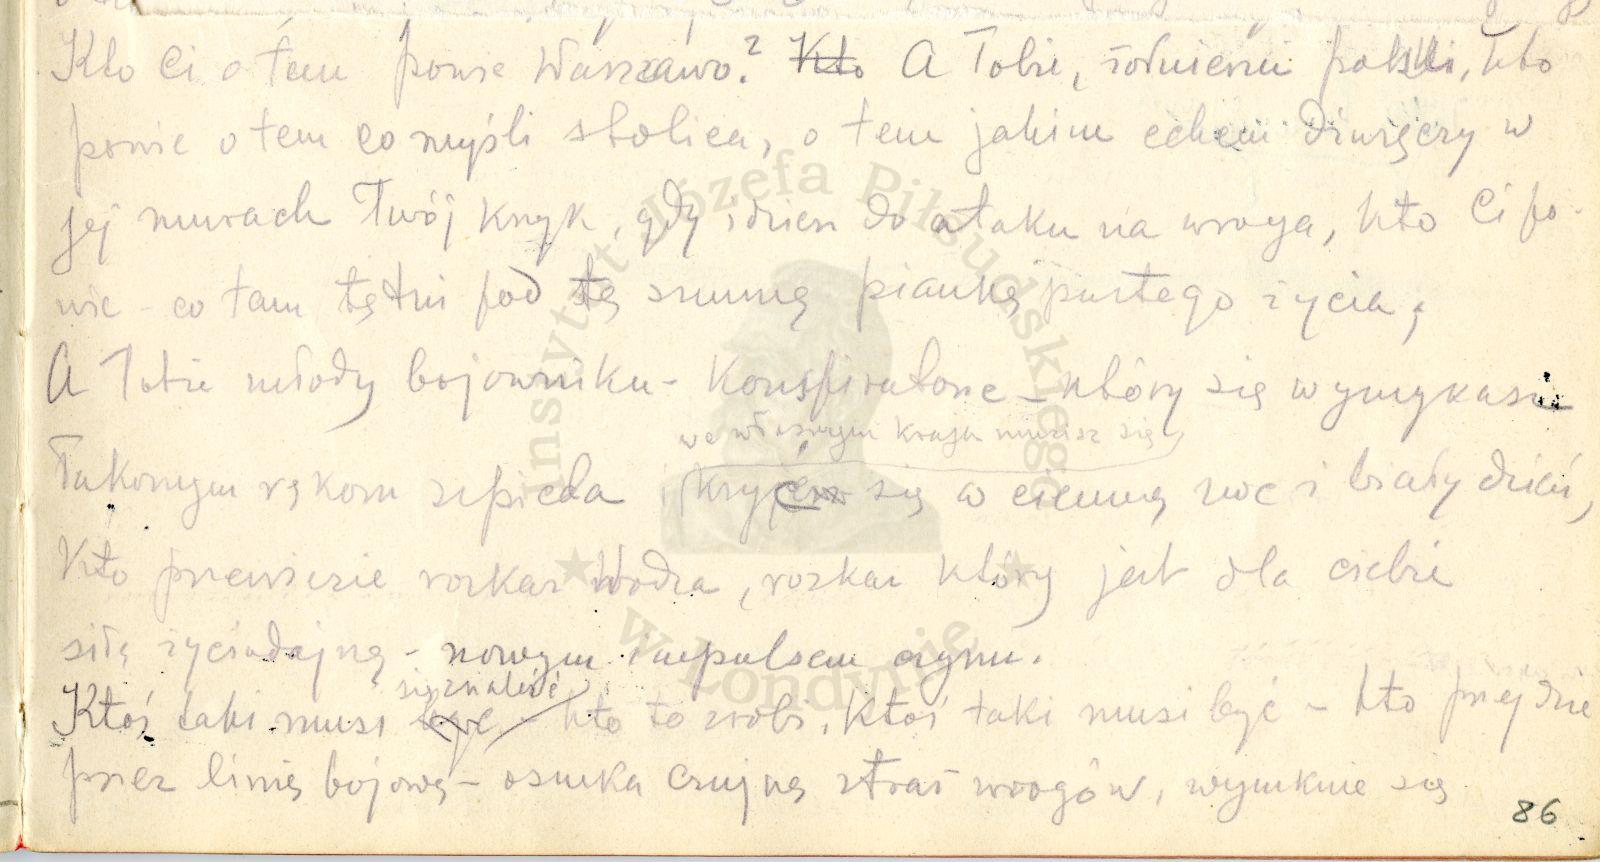 Kto Ci o tem powie Warszawo? Kto A Tobie, żołnierzu polski, kto
powie o tem co myśli stolica, o tem jakim echem dźwięczy w
jej murach Twój krzyk, gdy idziesz do ataku na wroga, kto Ci po-
wie - co tam tętni pod tą szumną pianką pustego życia,
A Tobie młody bojowniku - Konspiratorze - który się wymykasz
we własnym kraju musisz się
łakomym rękom szpicla i kryjesz się w ciemną noc i biały dzień,
Kto przewiezie rozkaz Wodza, rozkaz który jest dla ciebie
siłą życiodajną - nowym impulsem czynu.
się znaleźć
Ktoś taki musi być - kto to zrobi, Ktoś taki musi być - kto przejdzie
przez linię bojową - oszuka czujną straż wrogów, wymknie się
86
Instytut Józefa Piłsudskiego
w Londynie